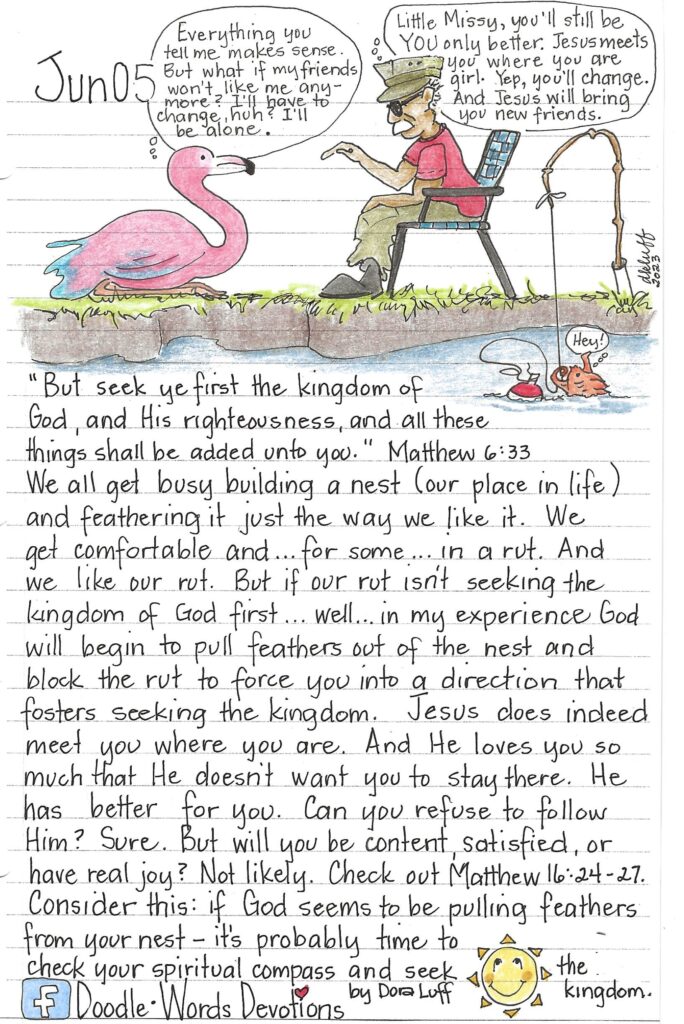 Jun 05
Everything you
tell me makes sense.
But what if my friends
won't like me any-
more? I'll have to
change, huh? I'll
be alone.
Little Missy, you'll still be
YOU only better. Jesus meets
you where you are
girl. Yep, you'll change.
And Jesus will bring
you new friends.
dkluff
2023
Hey!
"But seek ye first the kingdom of
God, and His righteousness, and all these
things shall be added unto you." Matthew 6:33
We all get busy building a nest (our place in life)
and feathering it just the way we like it. We
get comfortable and... for some... in a rut. And
we like our rut. But if our rut isn't seeking the
kingdom of God first... well... in my experience God
will begin to pull feathers out of the nest and
block the rut to force you into a direction that
fosters seeking the kingdom. Jesus does indeed
meet you where you are. And He loves you so
much that He doesn't want you to stay there. He
has better for you. Can you refuse to follow
Him? Sure. But will you be content, satisfied, or
have real joy? Not likely. Check out Matthew 16:24-27.
Consider this: if God seems to be pulling feathers
from your nest - it's probably time to
check your spiritual compass and seek the
kingdom.
f Doodle·Words Devotions by Dora Luff